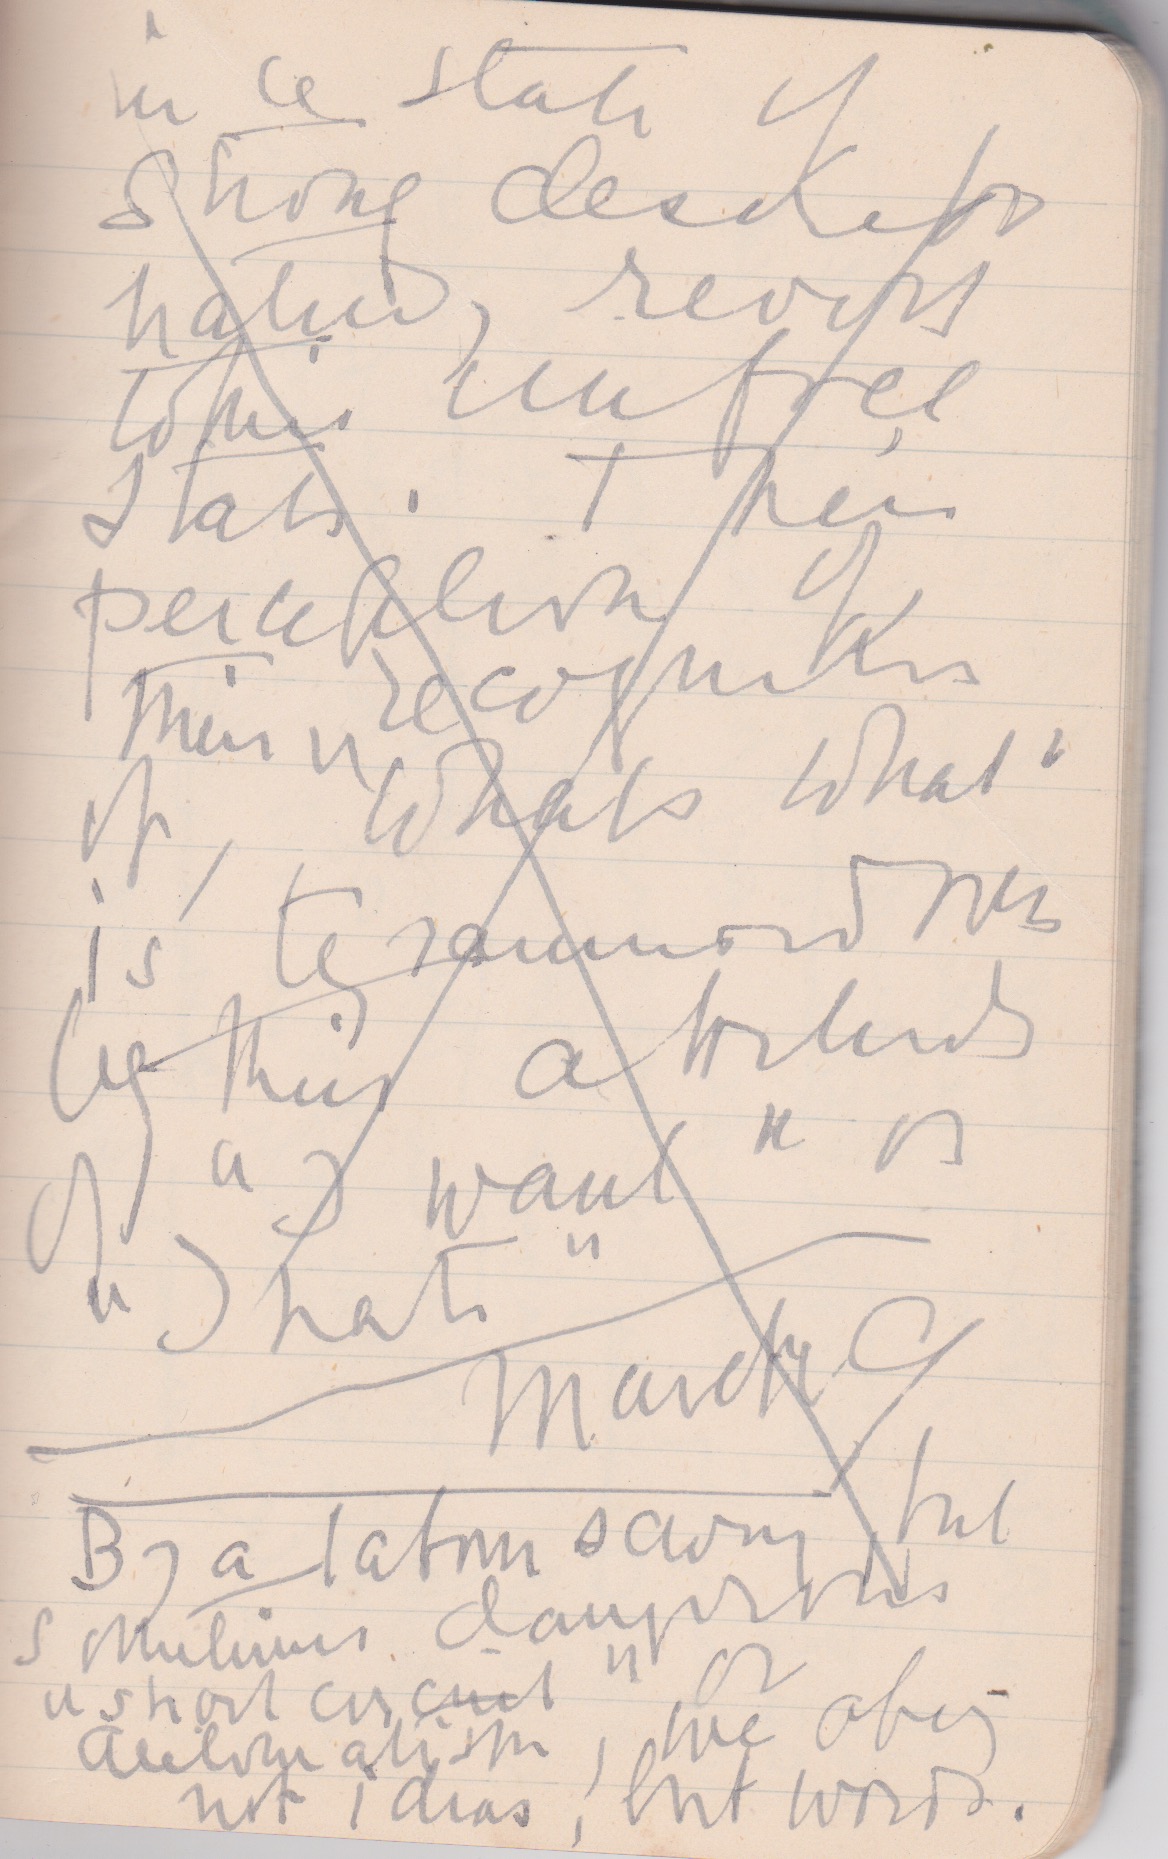 in a state of
strong
nature, reverts
to his unfree
state. Their
perception of
their recognition
of, "what's what"
is tyrannord over
by their attitude
of "I want" or
"I hate"
March 9
By a labour saving but
sometimes dangerous
"short circuit" or
automatism, we obey
not ideas, but words.